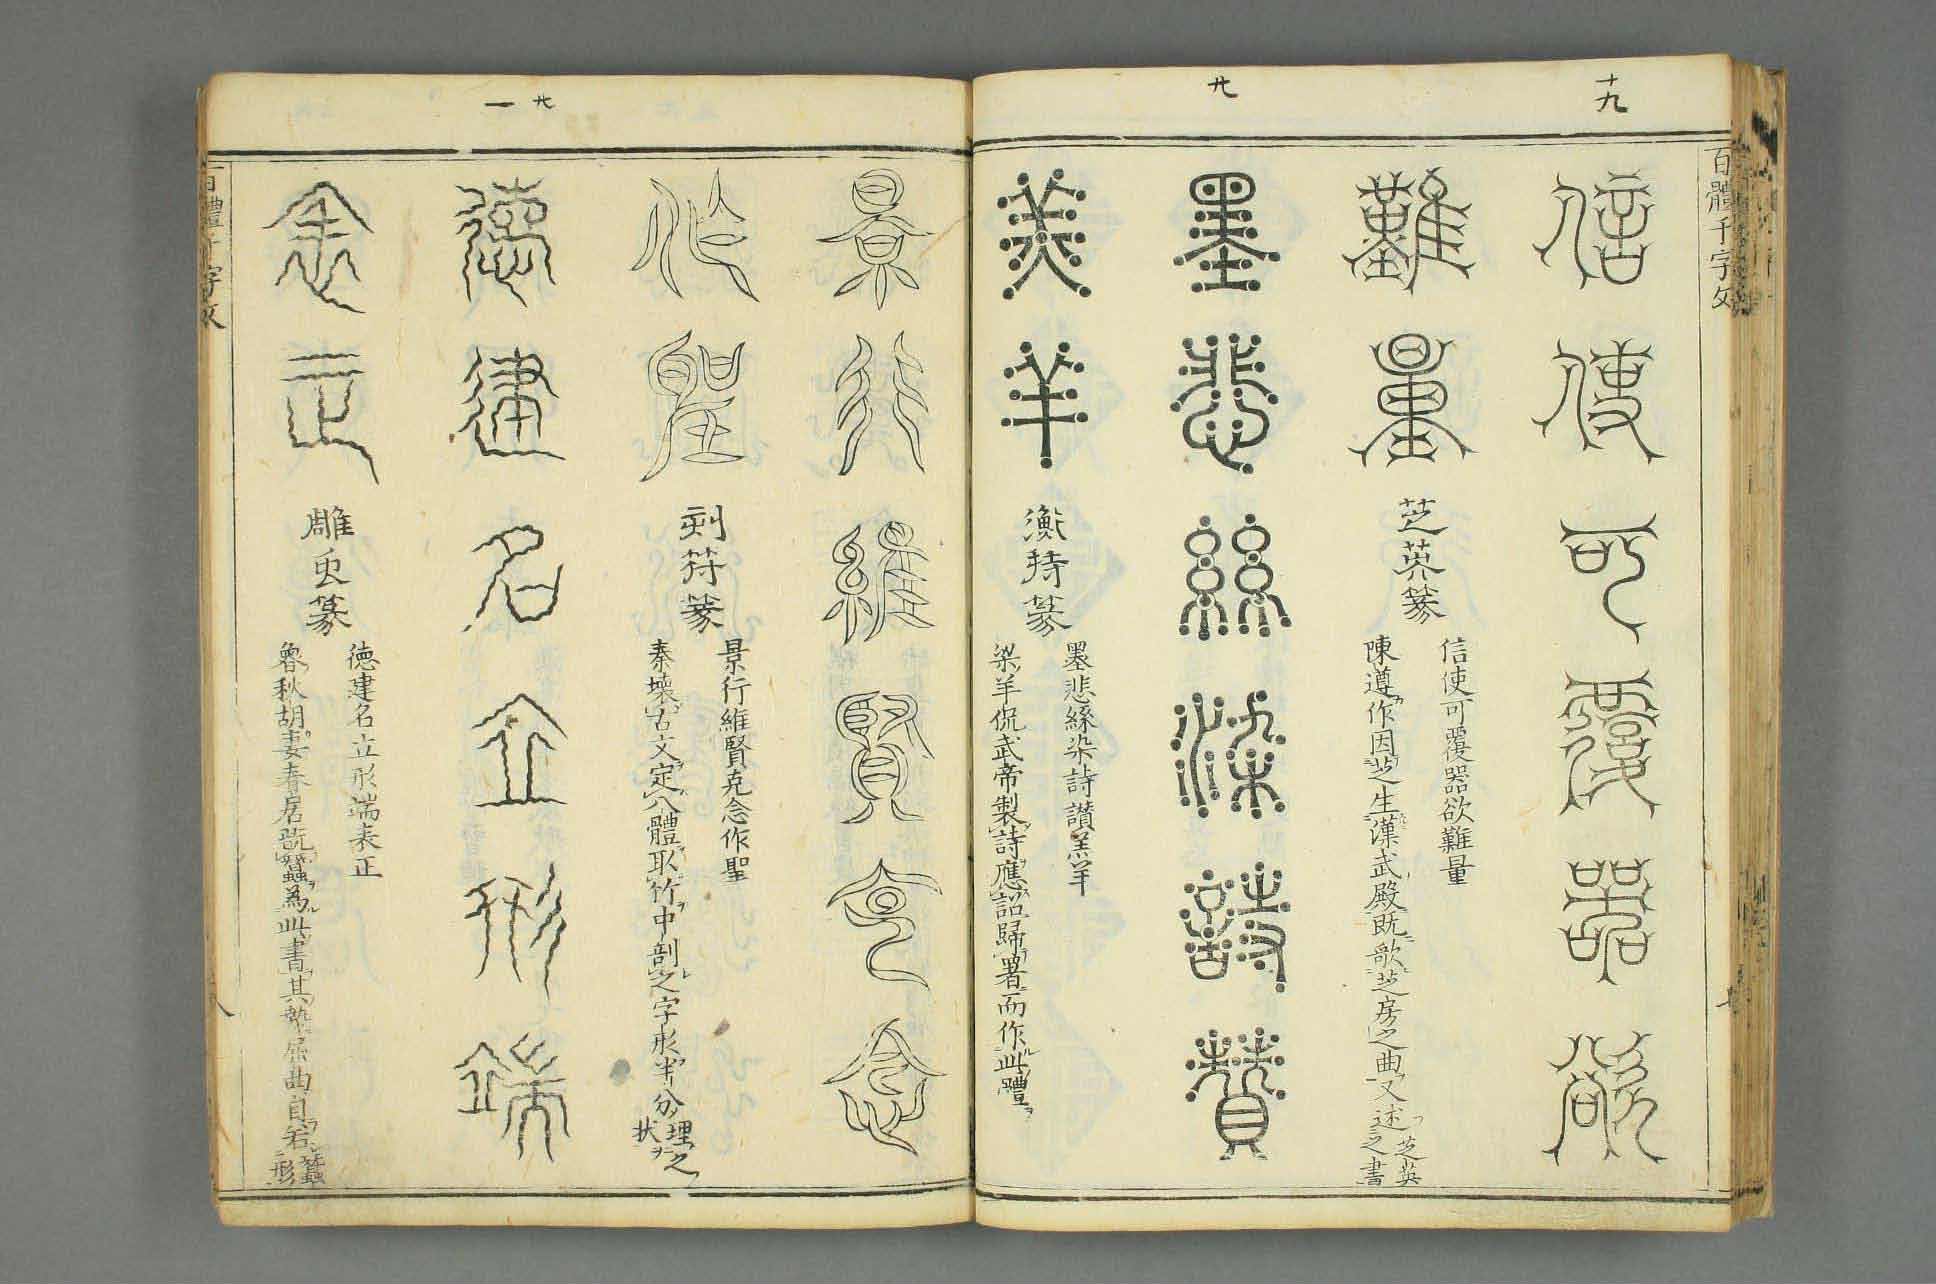 十九
百體千字文
信使可覆器欲
難量
芝英篆
信使可覆器欲難量
陳遵作因芝生漢武殿既歌芝房之曲又述芝英之書
廿
墨悲絲染詩讚
羔羊
衡持篆
墨悲絲染詩讃羔羊
梁羊侃武帝製詩應詔歸署而作此體
廿一
景行維賢克念
作聖
刻符篆
景行維賢克念作聖
秦壊古文定八體取竹中剖之字形半分理之状
德建名立形端
表正
雕虫篆
徳建名立形端表正
魯秋胡妻春居翫蠶為此書其埶屈曲自若蠶形
百體千字文